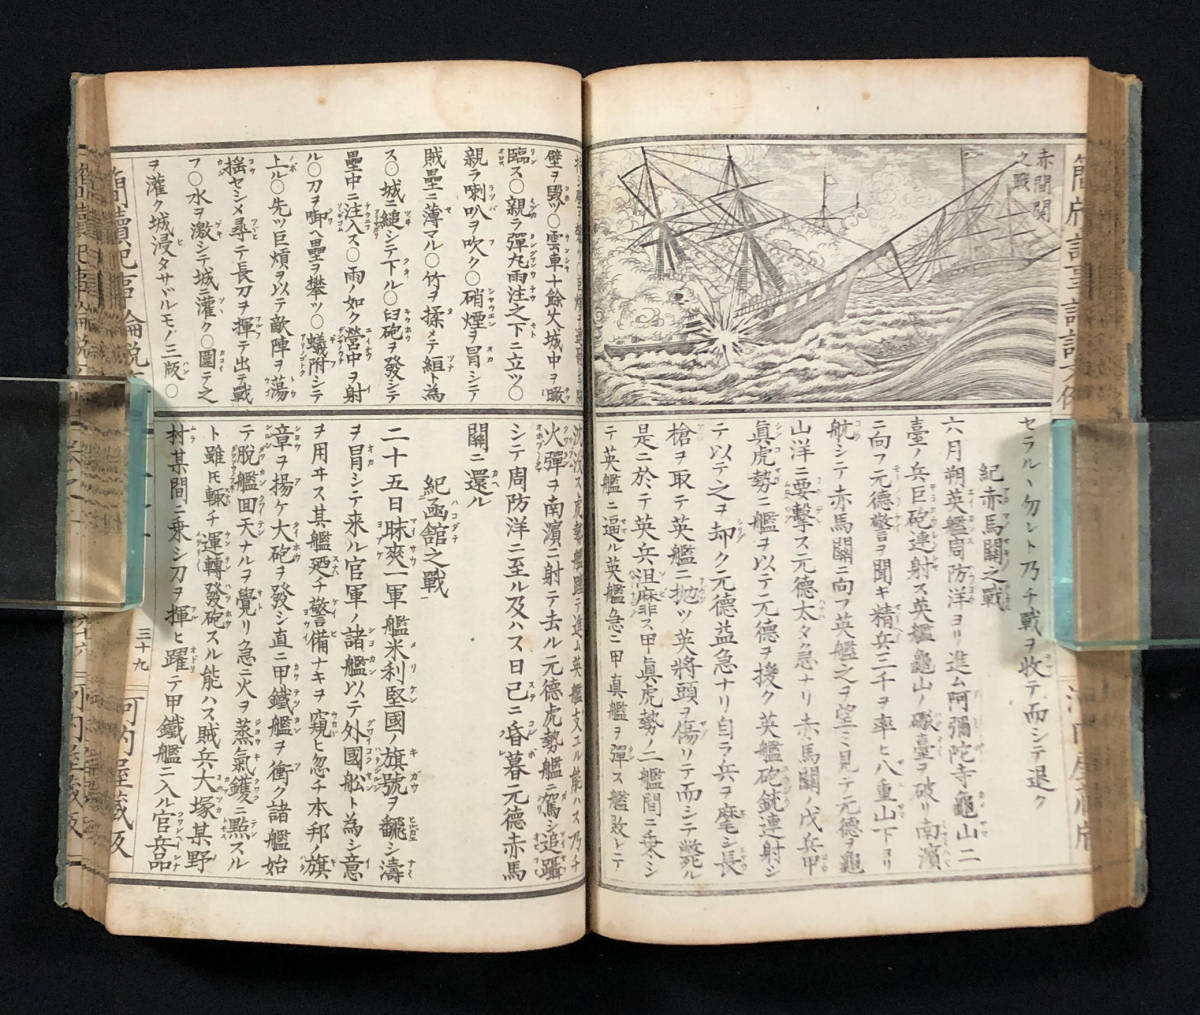 赤間関
之戰
セラル、勿レト乃チ戰ヲ收テ而シテ退ク
紀赤馬關之戰
六月朔英艦周防洋ヨリ進ム阿彌陀寺龜山二
臺ノ兵巨砲連射ス英艦龜山ノ礮臺ヲ破リ南濱
ニ向フ元德警ヲ聞キ精兵三千ヲ率ヒ八重山下ヨリ
航シテ赤馬關ニ向フ英艦之ヲ望ミ見テ元德ヲ龜
山洋ニ要擊ス元德太タ急ナリ赤馬關ノ戍兵甲
眞虎勢ニ艦ヲ以テ元德ヲ援ク英艦砲銃連射シ
テ以テ之ヲ却ク元德益急ナリ自ラ兵ヲ麾シ長
槍ヲ取テ英艦ニ抛ツ英將頭ヲ傷リテ而シテ斃ル
是ニ於テ英兵沮麻ス甲眞虎勢ノ二艦間ニ乗シ
テ英艦ニ逼ル英艦急ニ甲眞艦ヲ彈ス艦敗レテ
壁ヲ毀ツ○雲車十餘火城中ヲ瞰
臨ス○親ラ彈丸雨注之下ニ立ツ○
親ラ喇叭ヲ吹ク○硝煙ヲ冒シテ
賊壘ニ薄マル○竹ヲ揉メテ組ト為
ス○城ニ縋シテ下ル○臼砲ヲ發シテ
壘中ニ注入ス○雨ノ如ク營中ヲ射
ル○刀ヲ啣ヘ壘ヲ攀ツ○蟻附シテ
上ル○先ツ巨煩ヲ以テ敵陣ヲ蕩
揺セシメ尋テ長刀ヲ揮テ出テ戰
フ○水ヲ激シテ城灌ク○圍テ之
ヲ灌ク城浸タサヾルモノ三版○
沈没ス虎勢艦踵テ進ム英艦支エル能ハス乃チ
火彈ヲ南濱ニ射テ去ル元德虎勢艦ニ駕シ追躡
シテ周防洋ニ至ル及ハス日已ニ昏暮元德赤馬
關ニ還ル
紀函館之戰
二十五日昧爽一軍艦米利堅國ノ旗號ヲ飜シ濤
ヲ冒シテ来ル官軍ノ諸艦以テ外國舩ト為シ意
ヲ用ヰス其艦廼チ警備ナキヲ窺ヒ忽チ本邦ノ旗
章ヲ揚ケ大砲ヲ發シ直ニ甲鐵艦ヲ衝ク諸艦始
テ脱艦回天ナルヲ覺リ急ニ火ヲ蒸氣鑊ニ點スル
ト雖𪜈輙チ運轉發砲スル能ハス賊兵大塚某野
村某間ニ乗シ刀ヲ揮ヒ躍テ甲鐵艦ニ入ル官兵品
三十九